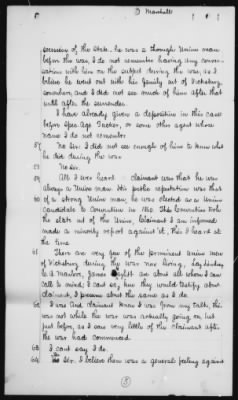 D Marshall
secession of the State. he was a thorough Union man
before the war, I do not remember having any conver-
sation with him on the subject during the war, as I
believe he went out with his family out of Vicksburg,
somewhere, and I did not see much of him after that
until after the surrender.
I have already given a deposition in this case
before Spec. Agt. or some other agent whose
name I do not remember
57 No Sir. I did not see enough of him to know what
he did during the war
58 No Sir.
59 All I ever heard claimant was that he was
always a Union man. His public reputation was that
60 of a strong Union man, he was elected as a Union
candidate to Convention in 1860. This Convention took
the state out of the Union. Claimant I am informed
made a minority report against it, this I heard at
the time
61 There are very few of the prominent union men
of Vicksburg during the war now living,
James are about all whom I can
call to mind; I cant say, how they would testify about
claimant, I presume about the same as I do.
62 I was and claimant knew I was from my talk, this
was not while the war was actually going on, but
just before, as I saw very little of the claimant after
the war had commenced
63 I cant say I do.
64 Yes Sir. I believe there was a general feeling against
(5)